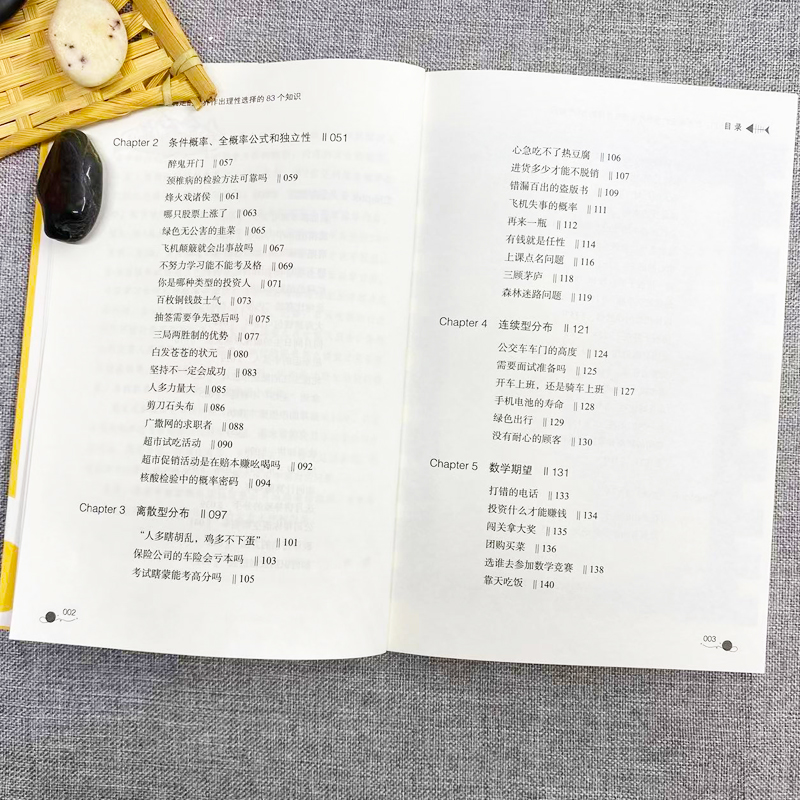 作出理性选择的 83 个知识
Chapter 2 条件概率、全概率公式和独立性 ‖ 051
醉鬼开门 ‖ 057
颈椎病的检验方法可靠吗 ‖ 059
烽火戏诸侯 ‖ 061
哪只股票上涨了 ‖ 063
绿色无公害的韭菜 ‖ 065
飞机颠簸就会出事故吗 ‖ 067
不努力学习能不能考及格 ‖ 069
你是哪种类型的投资人 ‖ 071
百枚铜钱鼓士气 ‖ 073
抽签需要争先恐后吗 ‖ 075
三局两胜制的优势 ‖ 077
白发苍苍的状元 ‖ 080
坚持不一定会成功 ‖ 083
人多力量大 ‖ 085
剪刀石头布 ‖ 086
广撒网的求职者 ‖ 088
超市试吃活动 ‖ 090
超市促销活动是在赔本赚吆喝吗 ‖ 092
核酸检验中的概率密码 ‖ 094
Chapter 3 离散型分布 ‖ 097
“人多瞎胡乱，鸡多不下蛋” ‖ 101
保险公司的车险会亏本吗 ‖ 103
考试瞎蒙能考高分吗 ‖ 105
002
目录
心急吃不了热豆腐 ‖ 106
进货多少才能不脱销 ‖ 107
错漏百出的盗版书 ‖ 109
飞机失事的概率 ‖ 111
再来一瓶 ‖ 112
有钱就是任性 ‖ 114
上课点名问题 ‖ 116
三顾茅庐 ‖ 118
森林迷路问题 ‖ 119
Chapter 4 连续型分布 ‖ 121
公交车车门的高度 ‖ 124
需要面试准备吗 ‖ 125
开车上班，还是骑车上班 ‖ 127
手机电池的寿命 ‖ 128
绿色出行 ‖ 129
没有耐心的顾客 ‖ 130
Chapter 5 数学期望 ‖ 131
打错的电话 ‖ 133
投资什么才能赚钱 ‖ 134
闯关拿大奖 ‖ 135
团购买菜 ‖ 136
选谁去参加数学竞赛 ‖ 138
靠天吃饭 ‖ 140
003